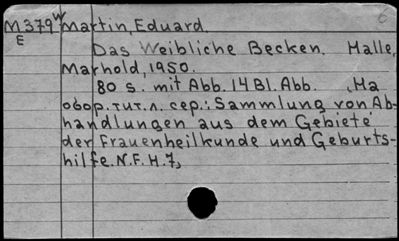 M379w Martin, Eduard.
E
Das Weibliche Becken. Halle,
Marhold, 1950.
80 s. mit Abb. 14 Bl. Abb. (На
обор. тит. л. сер.: Sammlung von Ab-
handlungen aus dem Gebiete
der Frauenheilkunde und Geburts-
hilfe. N.F. H. 7)